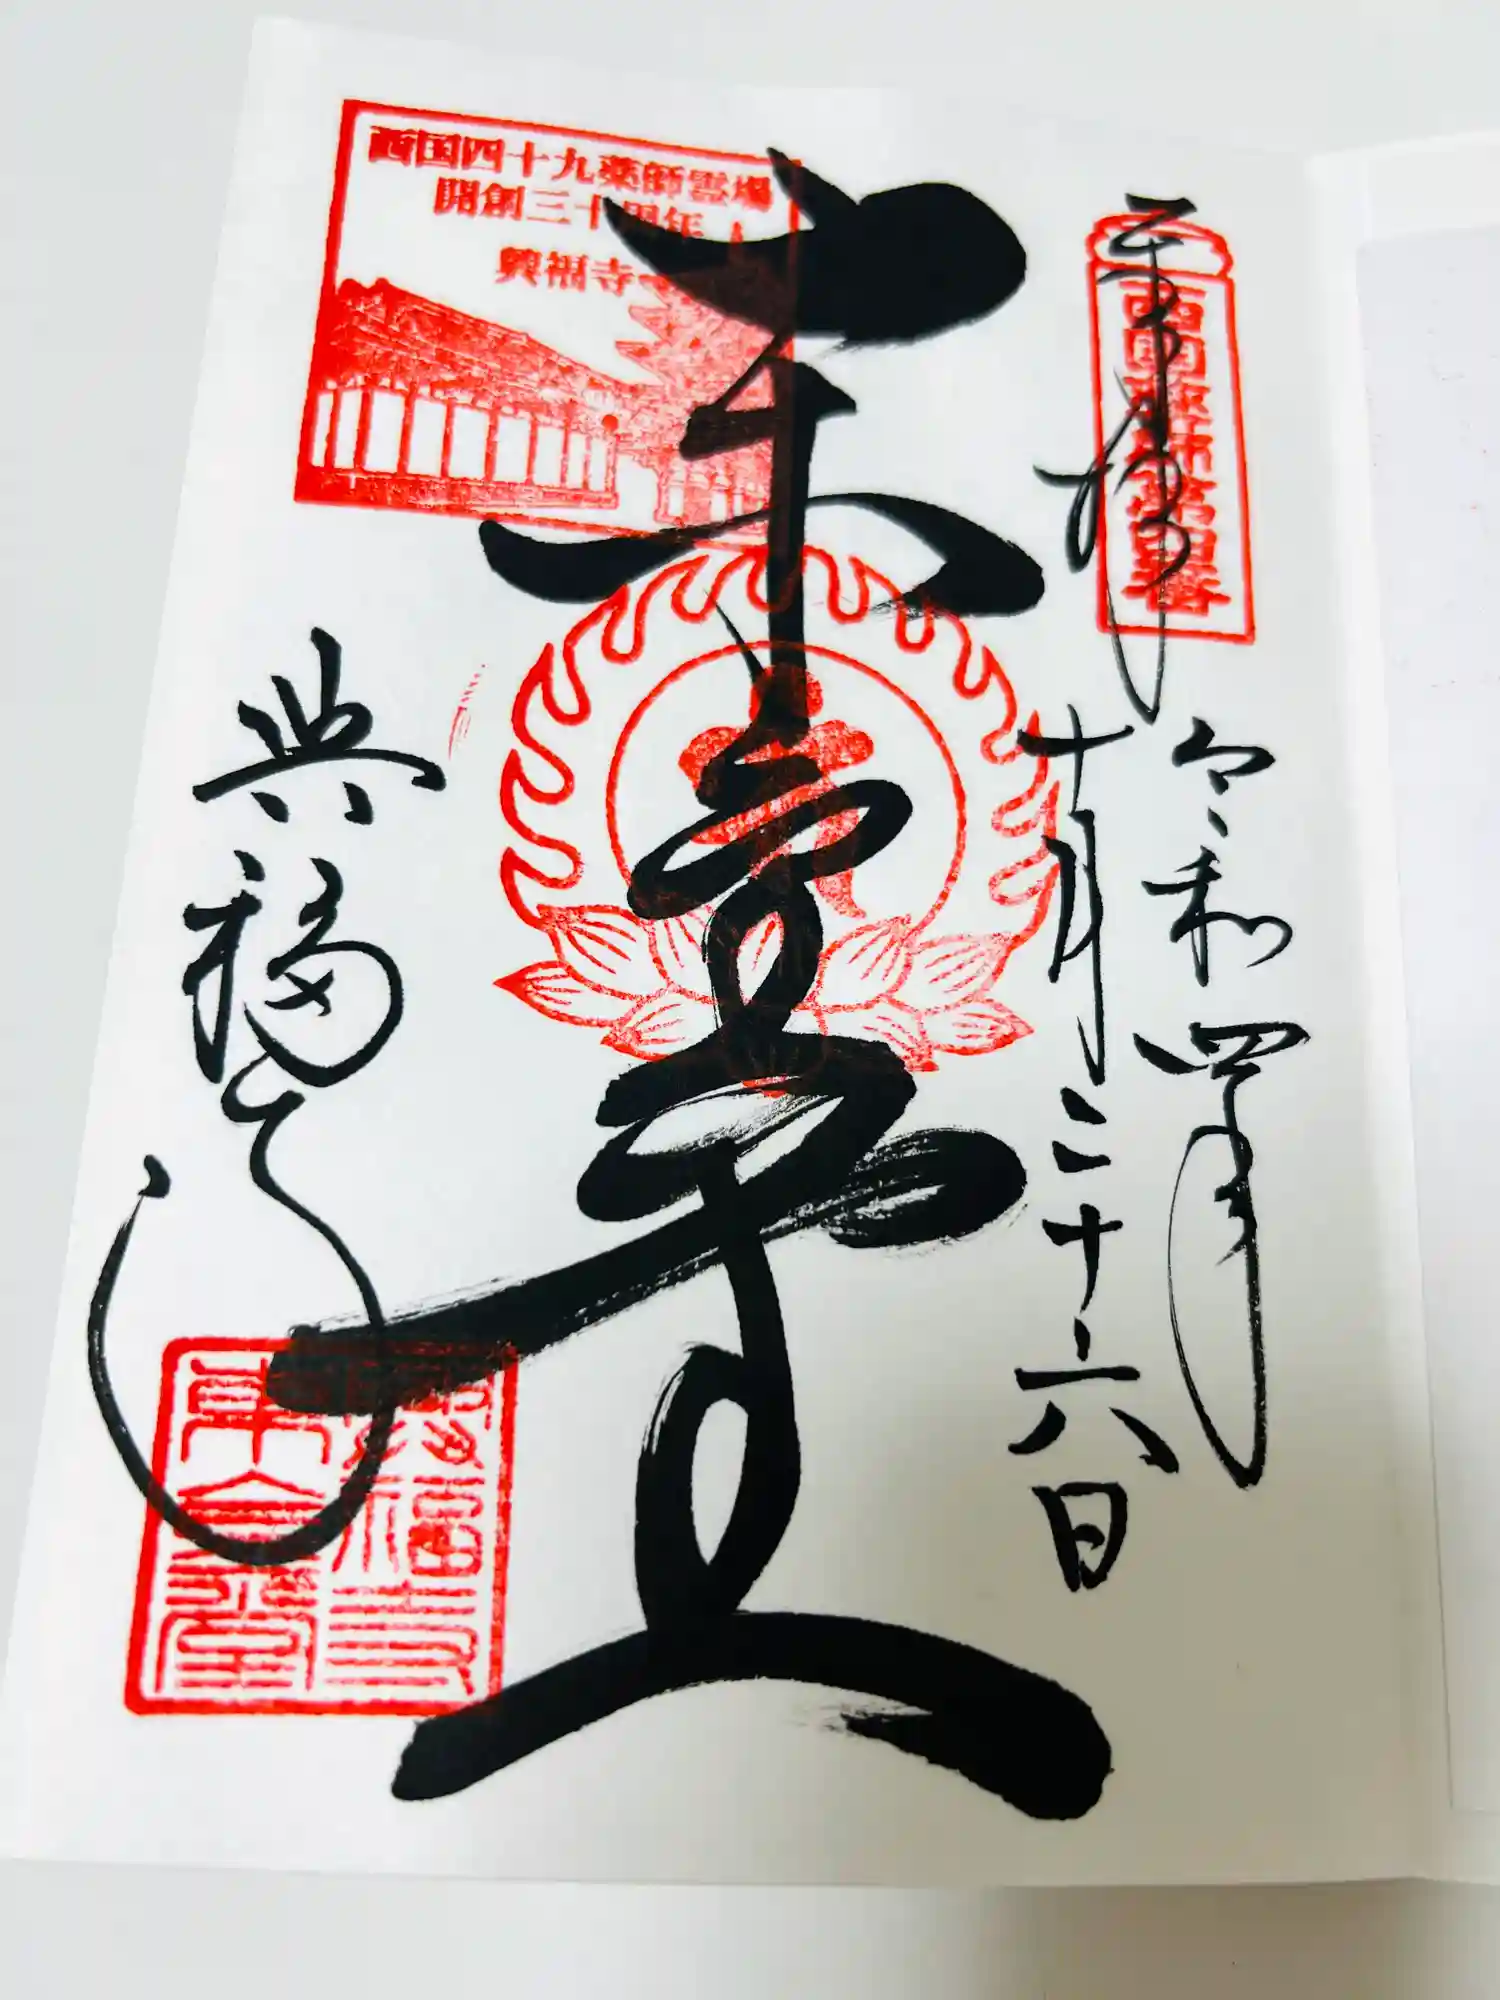 西国四十九薬師霊場
開創三十周年
興福寺
奉拝
西国薬師第四番
令和四年
十月二十六日
興福寺
興福寺
東金堂